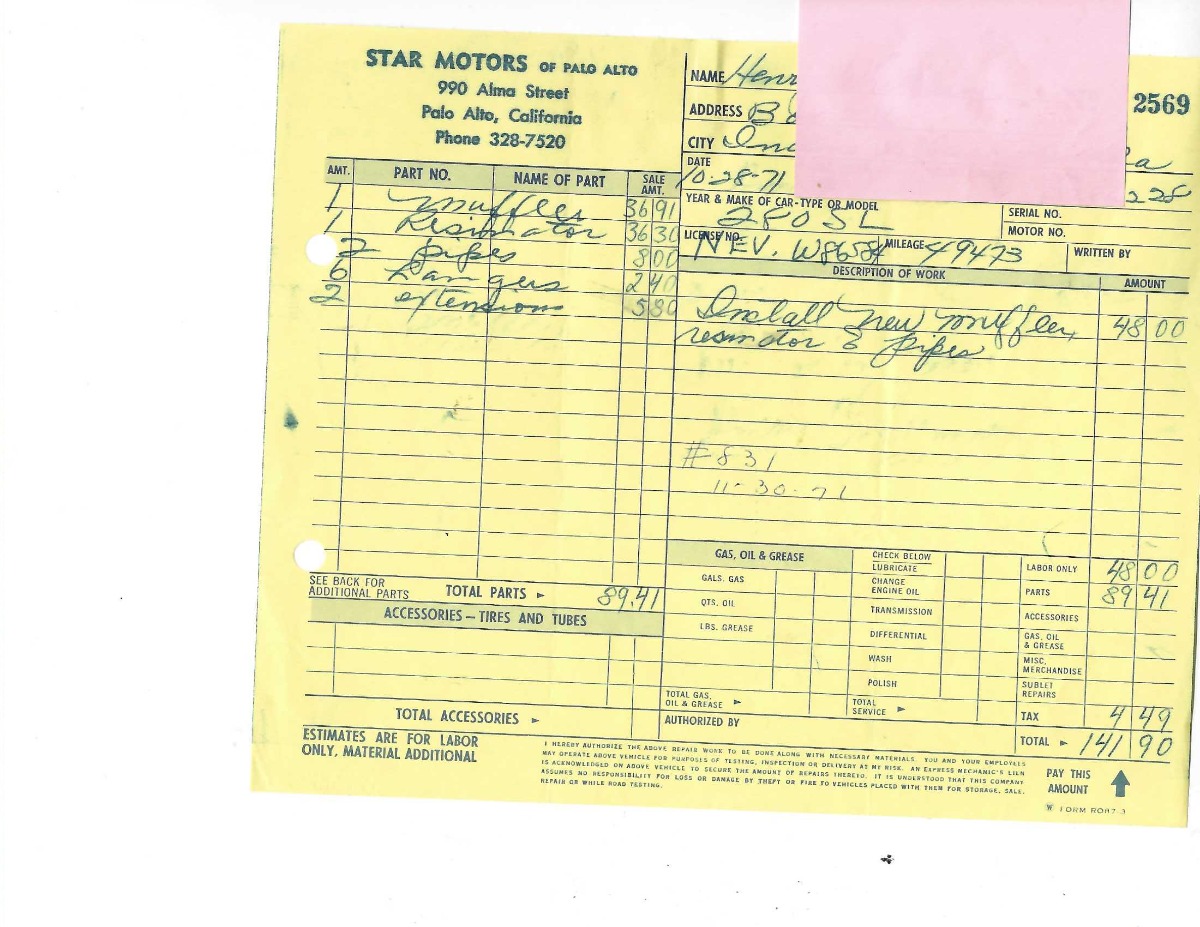 STAR MOTORS OF PALO ALTO
990 Alma Street
Palo Alto, California
Phone 328-7520
NAME Henr
ADDRESS B
CITY Ind
2569
DATE
10-28-71
228
YEAR & MAKE OF CAR-TYPE OR MODEL
280 SL
SERIAL NO.
MOTOR NO.
LICENSE NO.
NEV. W86584
MILEAGE 49473
WRITTEN BY
AMT. PART NO. NAME OF PART SALE AMT.
1 muffler 36 91
1 Resinator 36 30
2 pipes 8 00
6 hangers 2 40
2 extensions 5 80
DESCRIPTION OF WORK AMOUNT
Install new muffler, 48 00
resinator & pipes
#831
11-30-71
SEE BACK FOR
ADDITIONAL PARTS TOTAL PARTS ► 89.41
ACCESSORIES — TIRES AND TUBES
TOTAL ACCESSORIES ►
GAS, OIL & GREASE
GALS. GAS
QTS. OIL
LBS. GREASE
TOTAL GAS,
OIL & GREASE ►
CHECK BELOW
LUBRICATE
CHANGE
ENGINE OIL
TRANSMISSION
DIFFERENTIAL
WASH
POLISH
TOTAL
SERVICE ►
LABOR ONLY 48 00
PARTS 89 41
ACCESSORIES
GAS, OIL
& GREASE
MISC.
MERCHANDISE
SUBLET
REPAIRS
TAX 4 49
TOTAL ► 141 90
AUTHORIZED BY
ESTIMATES ARE FOR LABOR
ONLY, MATERIAL ADDITIONAL
I HEREBY AUTHORIZE THE ABOVE REPAIR WORK TO BE DONE ALONG WITH NECESSARY MATERIALS. YOU AND YOUR EMPLOYEES
MAY OPERATE ABOVE VEHICLE FOR PURPOSES OF TESTING, INSPECTION OR DELIVERY AT MY RISK. AN EXPRESS MECHANIC'S LIEN
IS ACKNOWLEDGED ON ABOVE VEHICLE TO SECURE THE AMOUNT OF REPAIRS THERETO. IT IS UNDERSTOOD THAT THIS COMPANY
ASSUMES NO RESPONSIBILITY FOR LOSS OR DAMAGE BY THEFT OR FIRE TO VEHICLES PLACED WITH THEM FOR STORAGE, SALE,
REPAIR OR WHILE ROAD TESTING.
PAY THIS
AMOUNT
FORM RO87-3